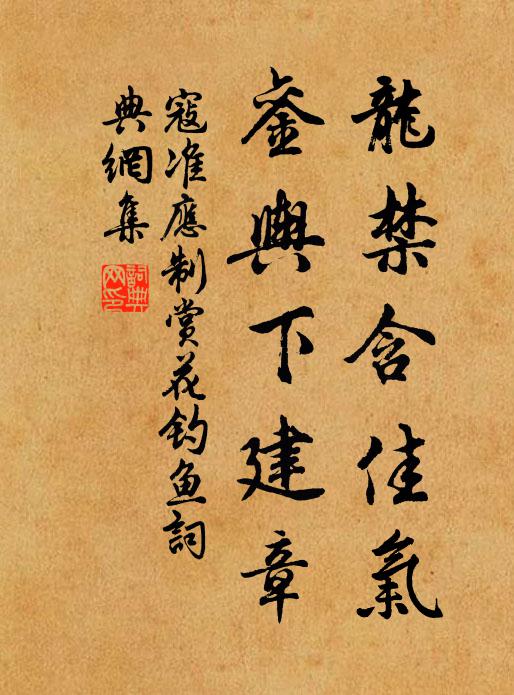 龍禁含佳氣
鑾輿下建章
寇准應制賞花釣鱼詞
典網集
詞典网印